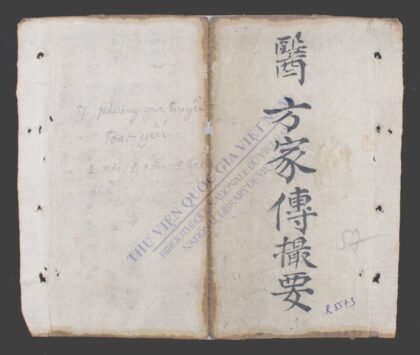 醫方家傳撮要
57
R.5573
Y phương gia truyền
toát yếu
THƯ VIỆN QUỐC GIA VIỆT NAM
BIBLIOTHÈQUE NATIONALE DU VIETNAM
NATIONAL LIBRARY OF VIETNAM